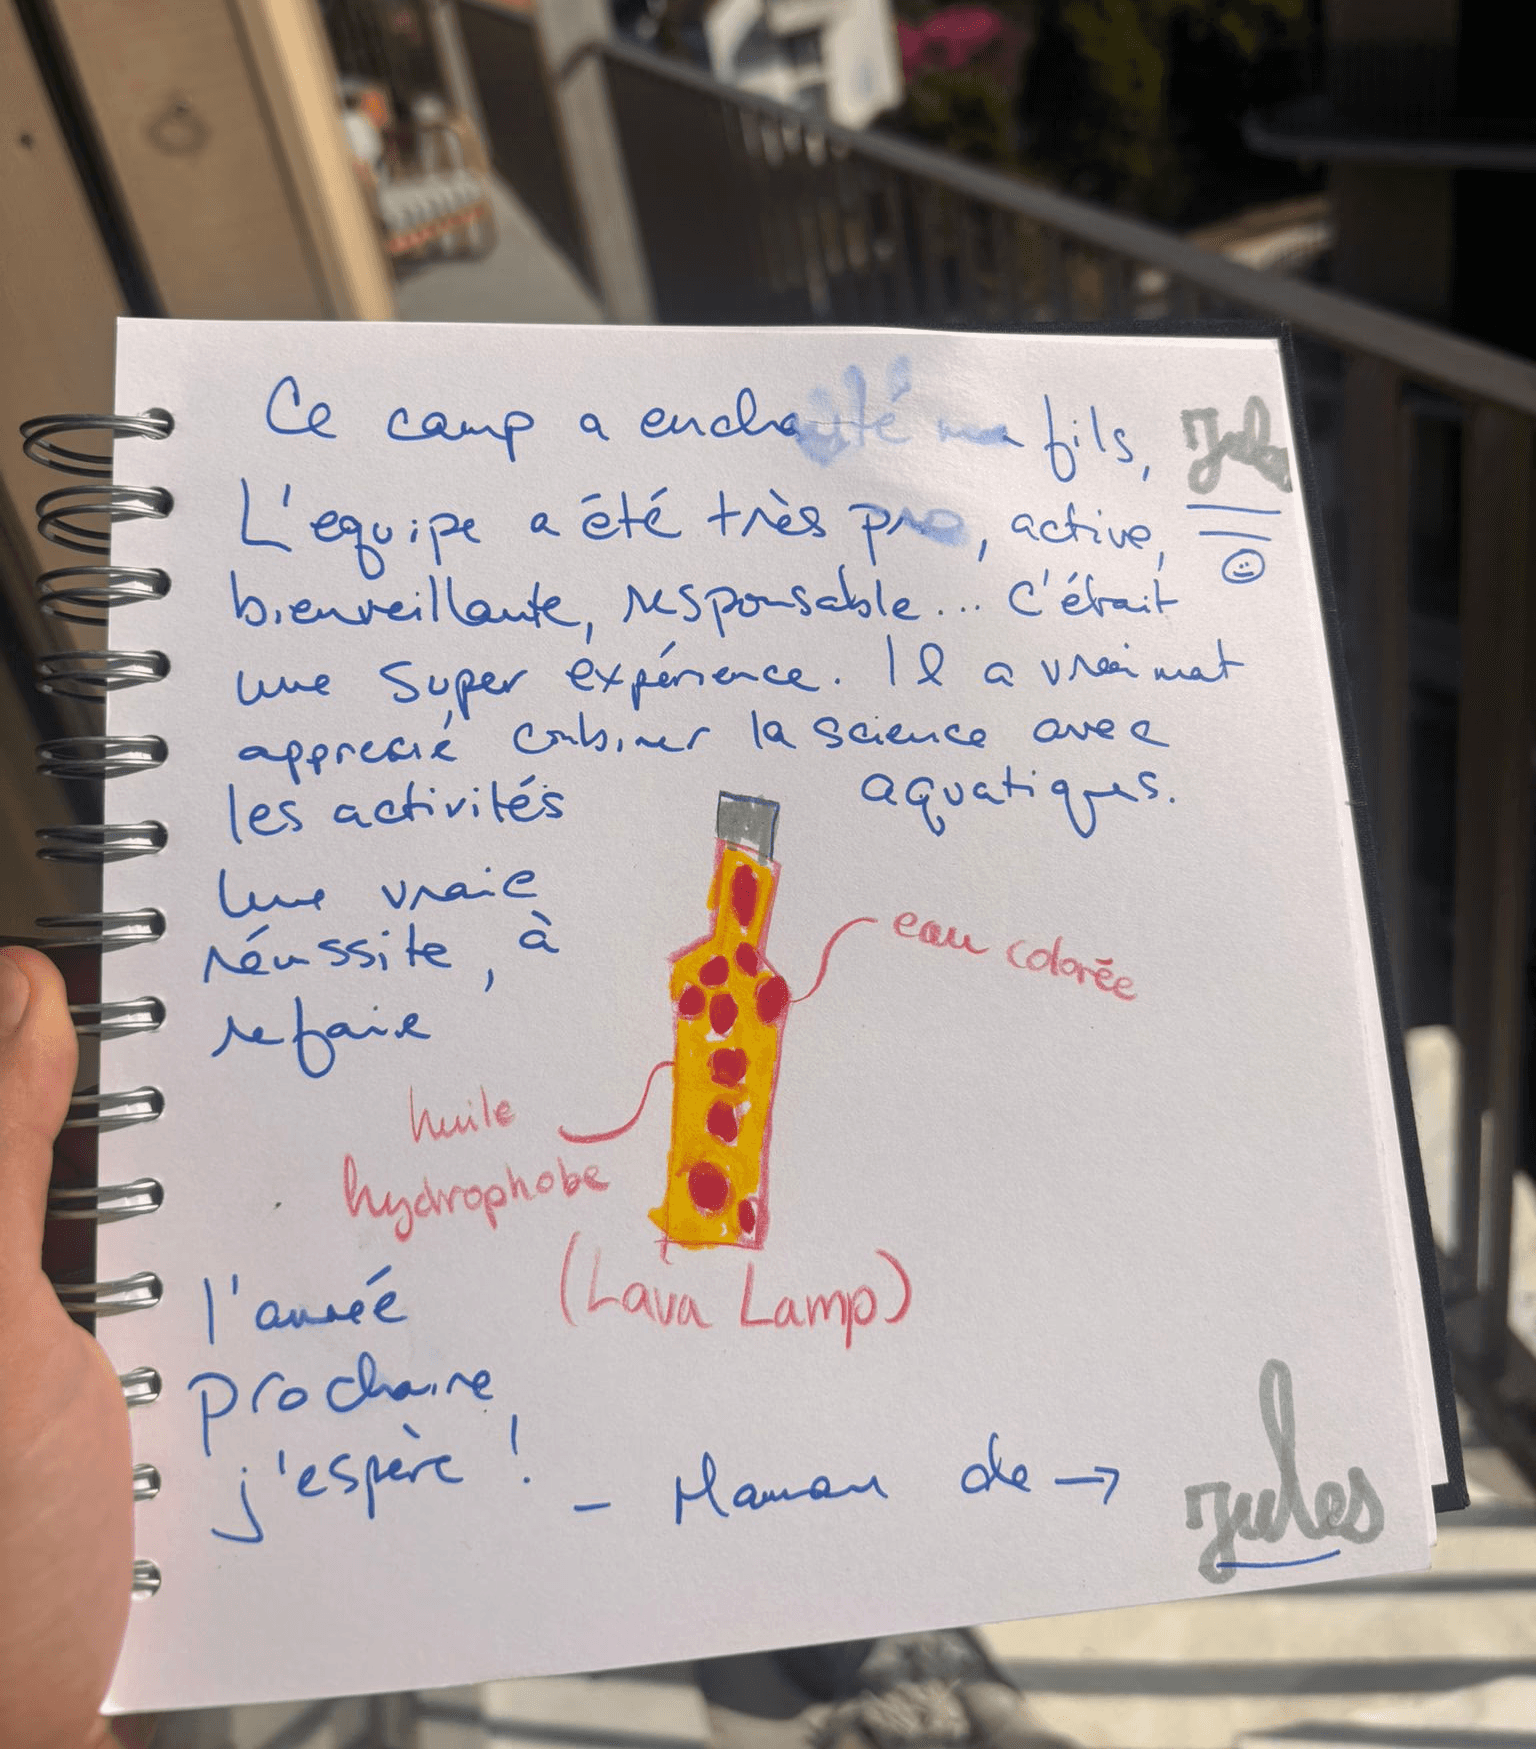 Ce camp a enchanté mon fils, Jules
L'equipe a été très pro, active,
bienveillante, responsable... C'était
une super expérience. Il a vraimat
apprecié combiner la science avec
les activités aquatiques.
Une vraie
réussite, à
refaire
eau colorée
huile
hydrophobe
(Lava Lamp)
l'année
prochaine
j'espère !
- Maman de → Jules